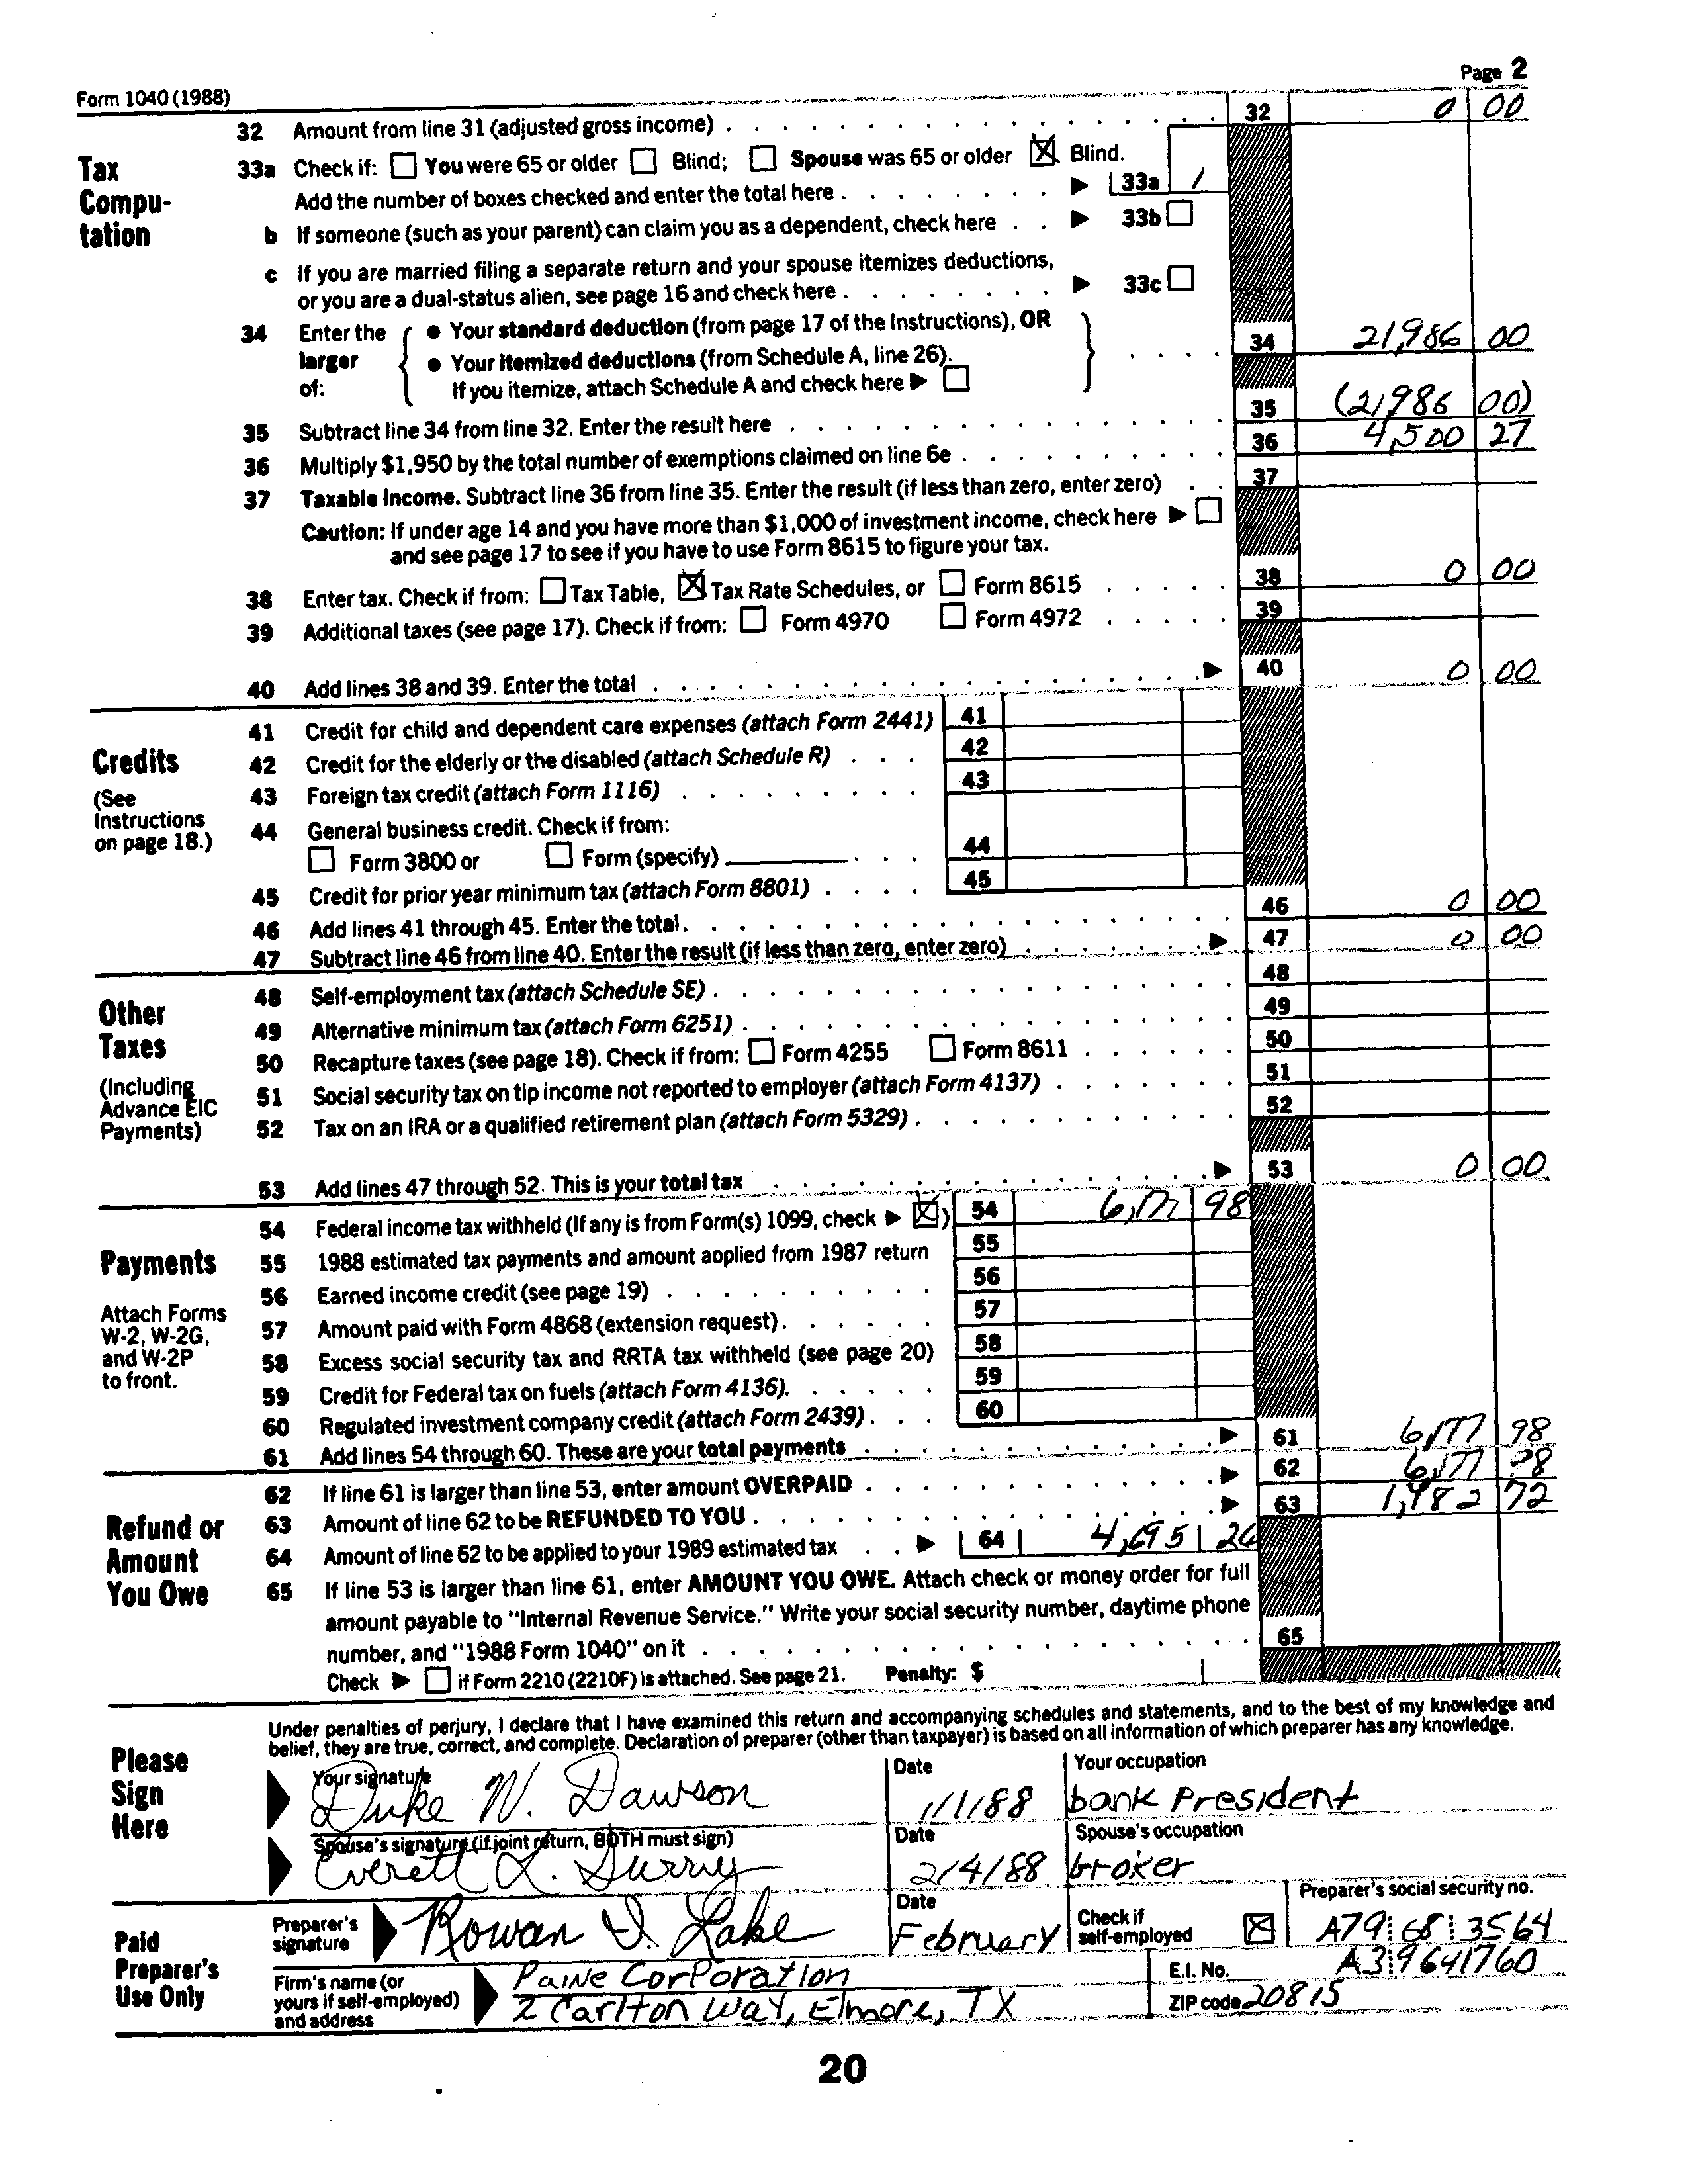 Form 1040 (1988) Page 2
Tax Computation
32 Amount from line 31 (adjusted gross income) 32 0 00
33a Check if: ☐ You were 65 or older ☐ Blind; ☐ Spouse was 65 or older ☒ Blind.
Add the number of boxes checked and enter the total here ▶ 33a 1
b If someone (such as your parent) can claim you as a dependent, check here ▶ 33b ☐
c If you are married filing a separate return and your spouse itemizes deductions,
or you are a dual-status alien, see page 16 and check here ▶ 33c ☐
34 Enter the larger of: { ● Your standard deduction (from page 17 of the Instructions), OR
● Your itemized deductions (from Schedule A, line 26).
If you itemize, attach Schedule A and check here ▶ ☐ } 34 21,986 00
35 Subtract line 34 from line 32. Enter the result here 35 (21,986 00)
36 Multiply $1,950 by the total number of exemptions claimed on line 6e 36 4,500 27
37 Taxable income. Subtract line 36 from line 35. Enter the result (if less than zero, enter zero) 37
Caution: If under age 14 and you have more than $1,000 of investment income, check here ▶ ☐
and see page 17 to see if you have to use Form 8615 to figure your tax.
38 Enter tax. Check if from: ☐ Tax Table, ☒ Tax Rate Schedules, or ☐ Form 8615 38 0 00
39 Additional taxes (see page 17). Check if from: ☐ Form 4970 ☐ Form 4972 39
40 Add lines 38 and 39. Enter the total ▶ 40 0 00
Credits
(See Instructions on page 18.)
41 Credit for child and dependent care expenses (attach Form 2441) 41
42 Credit for the elderly or the disabled (attach Schedule R) 42
43 Foreign tax credit (attach Form 1116) 43
44 General business credit. Check if from:
☐ Form 3800 or ☐ Form (specify) 44
45 Credit for prior year minimum tax (attach Form 8801) 45
46 Add lines 41 through 45. Enter the total 46 0 00
47 Subtract line 46 from line 40. Enter the result (if less than zero, enter zero) ▶ 47 0 00
Other Taxes
(Including Advance EIC Payments)
48 Self-employment tax (attach Schedule SE) 48
49 Alternative minimum tax (attach Form 6251) 49
50 Recapture taxes (see page 18). Check if from: ☐ Form 4255 ☐ Form 8611 50
51 Social security tax on tip income not reported to employer (attach Form 4137) 51
52 Tax on an IRA or a qualified retirement plan (attach Form 5329) 52
53 Add lines 47 through 52. This is your total tax ▶ 53 0 00
Payments
Attach Forms W-2, W-2G, and W-2P to front.
54 Federal income tax withheld (If any is from Form(s) 1099, check ▶ ☒) 54 6,177 98
55 1988 estimated tax payments and amount applied from 1987 return 55
56 Earned income credit (see page 19) 56
57 Amount paid with Form 4868 (extension request) 57
58 Excess social security tax and RRTA tax withheld (see page 20) 58
59 Credit for Federal tax on fuels (attach Form 4136) 59
60 Regulated investment company credit (attach Form 2439) 60
61 Add lines 54 through 60. These are your total payments ▶ 61 6,177 98
Refund or Amount You Owe
62 If line 61 is larger than line 53, enter amount OVERPAID ▶ 62 6,177 98
63 Amount of line 62 to be REFUNDED TO YOU ▶ 63 1,482 72
64 Amount of line 62 to be applied to your 1989 estimated tax ▶ 64 4,695 26
65 If line 53 is larger than line 61, enter AMOUNT YOU OWE. Attach check or money order for full
amount payable to "Internal Revenue Service." Write your social security number, daytime phone
number, and "1988 Form 1040" on it 65
Check ▶ ☐ if Form 2210 (2210F) is attached. See page 21. Penalty: $
Please Sign Here
Under penalties of perjury, I declare that I have examined this return and accompanying schedules and statements, and to the best of my knowledge and
belief, they are true, correct, and complete. Declaration of preparer (other than taxpayer) is based on all information of which preparer has any knowledge.
Your signature Date Your occupation
Duke W. Dawson 1/1/88 bank President
Spouse's signature (if joint return, BOTH must sign) Date Spouse's occupation
Everett L. Surrey 2/4/88 broker
Paid Preparer's Use Only
Preparer's signature Rowan I. Lake Date February Check if self-employed ☒ Preparer's social security no. A79 68 3564
Firm's name (or yours if self-employed) and address
Paine Corporation E.I. No. A39641760
2 Carlton Way, Elmore, TX ZIP code 20815
20